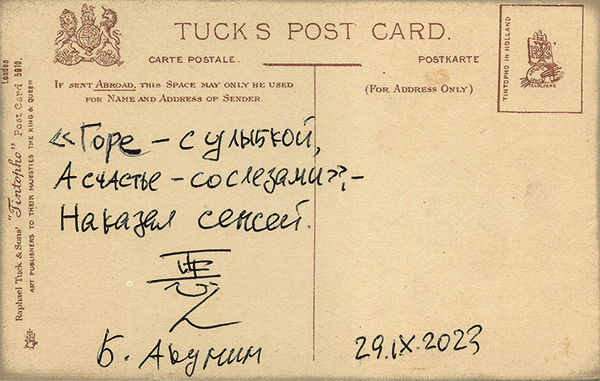 TUCK'S POST CARD.
CARTE POSTALE.
POSTKARTE
IF SENT ABROAD, THIS SPACE MAY ONLY BE USED
FOR NAME AND ADDRESS OF SENDER.
(FOR ADDRESS ONLY)
TINTOPHO IN HOLLAND
«Горе – с улыбкой,
А счастье – со слезами», –
Наказал сенсей.
Б. Акунин
29.IX.2023
Raphael Tuck & Sons' "Tintopho" Post Card
London
ART PUBLISHERS TO THEIR MAJESTIES THE KING & QUEEN